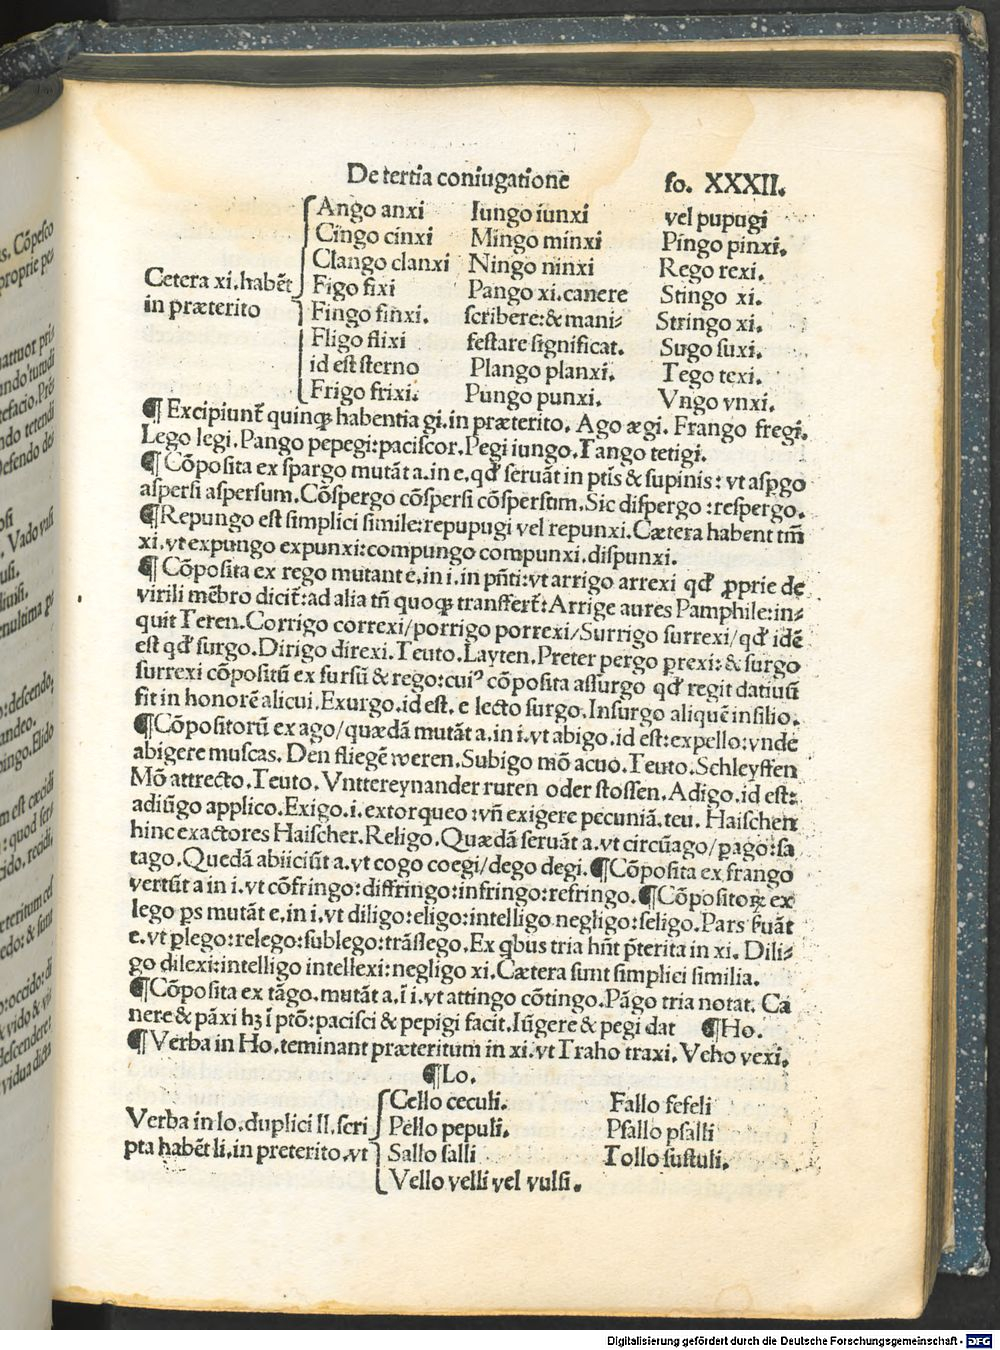 De tertia coniugatione fo. XXXII.
Ango anxi Iungo iunxi vel pupugi
Cingo cinxi Mingo minxi Pingo pinxi.
Clango clanxi Ningo ninxi Rego rexi.
Cetera xi. habēt Figo fixi Pango xi. canere Stingo xi.
in præterito Fingo finxi. scribere: & mani- Stringo xi.
Fligo flixi festare significat. Sugo suxi.
id est sterno Plango planxi. Tego texi.
Frigo frixi. Pungo punxi. Vngo vnxi.
¶ Excipiunt̃ quinqꝫ habentia gi. in præterito. Ago ægi. Frango fregi.
Lego legi. Pango pepegi: paciscor. Pegi iungo. Tango tetigi.
¶ Cōposita ex spargo mutāt a. in e. qđ seruāt in ptīs & supinis: vt aspgo
aspersi aspersum. Cōspergo cōspersi cōspersum. Sic dispergo: respergo.
¶ Repungo est simplici simile: repupugi vel repunxi. Cætera habent tm̄
xi. vt expungo expunxi: compungo compunxi. dispunxi.
¶ Cōposita ex rego mutant e. in i. in pn̄ti: vt arrigo arrexi qđ ꝓprie de
virili mēbro dicit̃: ad alia tn̄ quoqꝫ transfert̃: Arrige aures Pamphile: in-
quit Teren. Corrigo correxi/ porrigo porrexi/ Surrigo surrexi/ qđ idē
est qđ surgo. Dirigo direxi. Teuto. Layten. Preter pergo ꝑrexi: & surgo
surrexi cōpositū ex sursū & rego: cui⁹ cōposita assurgo qđ regit datiuū
fit in honorē alicui. Exurgo. id est. e lecto surgo. Insurgo aliquē insilio.
¶ Cōpositorū ex ago/ quædā mutāt a. in i. vt abigo. id est: expello: vnde
abigere muscas. Den fliegē weren. Subigo mō acuo. Teuto. Schleyffen
Mō attrecto. Teuto. Vnttereynander ruren oder stossen. Adigo. id est:
adiūgo applico. Exigo. i. extorqueo: vn̄ exigere pecuniā. teu. Haischen
hinc exactores Haischer. Religo. Quædā seruāt a. vt circūago/ ꝑago: sa
tago. Quedā abiiciūt a. vt cogo coegi/ dego degi. ¶ Cōposita ex frango
vertūt a in i. vt cōfringo: diffringo: infringo: refringo. ¶ Cōpositoꝝ ex
lego ꝑs mutāt e. in i. vt diligo: eligo: intelligo negligo: seligo. Pars ẜuāt
e. vt ꝑlego: relego: sublego: trāslego. Ex qbus tria hn̄t p̄terita in xi. Dili-
go dilexi: intelligo intellexi: negligo xi. Cætera sunt simplici similia.
¶ Cōposita ex tāgo. mutāt a. ī i. vt attingo cōtingo. Pāgo tria notat. Ca
nere & pāxi hꝫ ī ptō: pacisci & pepigi facit. Iūgere & pegi dat ¶ Ho.
¶ Verba in Ho. teminant præteritum in xi. vt Traho traxi. Veho vexi.
¶ Lo.
Cello ceculi. Fallo fefeli
Verba in lo. duplici ll. scri Pello pepuli. Psallo psalli
pta habēt li. in preterito. vt Sallo salli Tollo sustuli.
Vello velli vel vulsi.
Digitalisierung gefördert durch die Deutsche Forschungsgemeinschaft - DFG